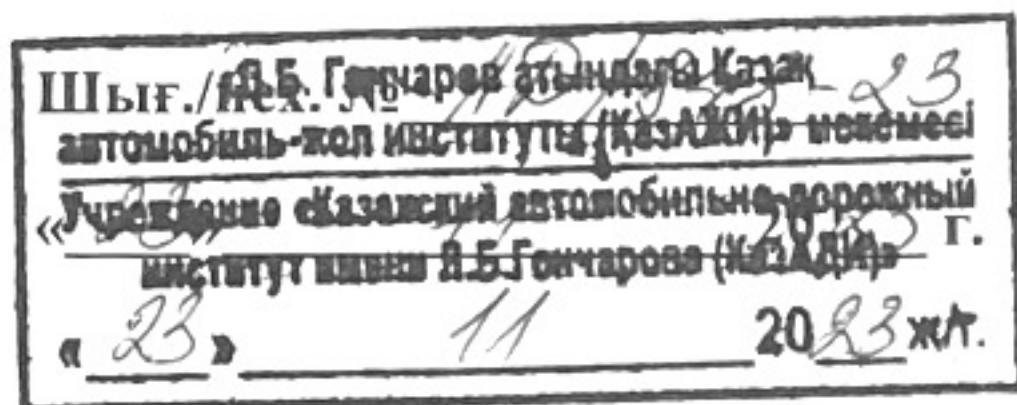 Шығ./исх. №
«Л.Б. Гончаров атындағы Қазақ
автомобиль-жол институты (ҚазАЖИ)» мекемесі
Учреждение «Казахский автомобильно-дорожный
институт имени Л.Б.Гончарова (КазАДИ)»
« 23 » 11 20 23 ж/г.